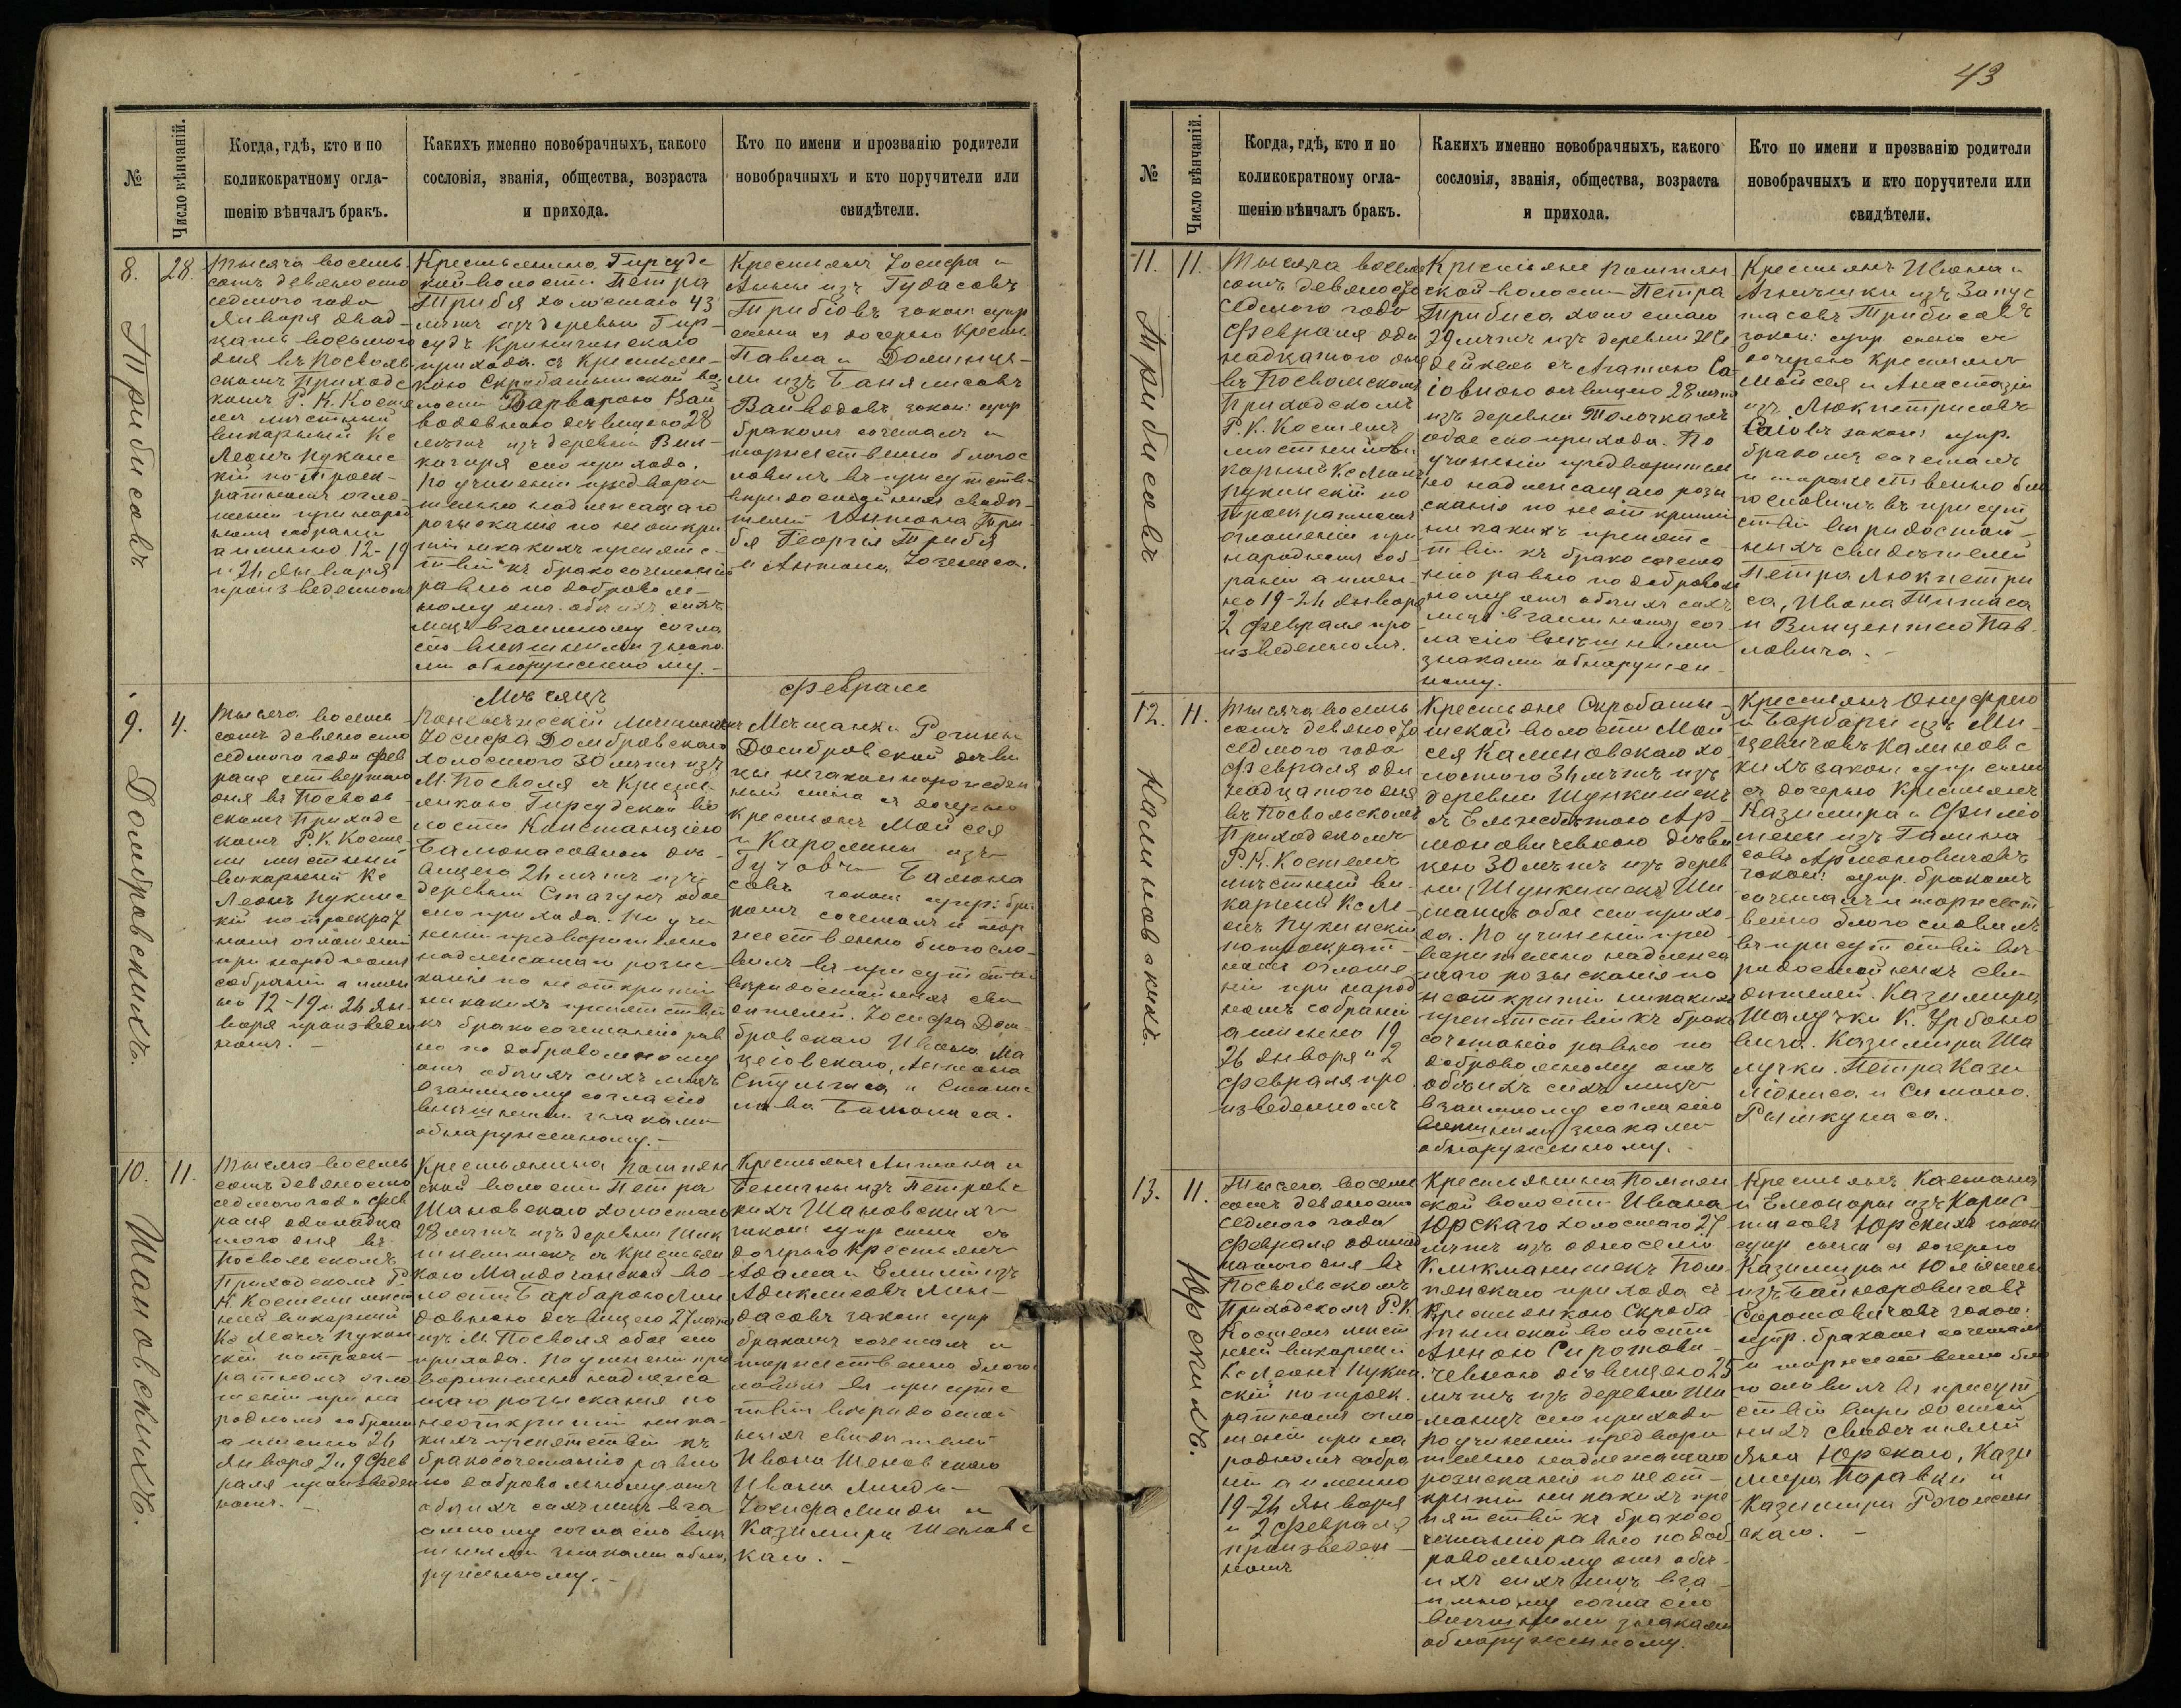 43
№
Число вѣнчаній.
Когда, гдѣ, кто и по
коликократному огла-
шенію вѣнчалъ бракъ.
Какихъ именно новобрачныхъ, какого
сословія, званія, общества, возраста
и прихода.
Кто по имени и прозванію родители
новобрачныхъ и кто поручители или
свидѣтели.
8.
Трибисовъ
28.
Тысяча восемь
сотъ девяносто
седмого года
Января двад-
цать восьмого
дня въ Посволь-
скомъ Приходс
комъ Р. К. Косте
лѣ мѣстный
викарный Кс
Леонъ Пукинс
кій по троек-
ратномъ огло-
шеніи при народ
номъ собраніи
а именно 12-19
и 26 Января
произведенномъ
Крестьянина Гирсудс
кой волости Петра
Трибя холостаго 43
лѣтъ изъ деревни Гир-
судъ Криничинскаго
прихода съ Крестьян-
кою Скробатышской во
лости Варварою Вай
водовною дѣвицею 28
лѣтъ изъ деревни Вил-
кагиря сего прихода.
По учиненіи предвори
тельно надлежащаго
розысканія по неоткры
тіи никакихъ препятс-
твій къ бракосочетанію
равно по доброволь-
ному отъ обѣихъ сихъ
лицъ взаимному согла
сію внѣшними знака
ми обнаруженному.
Крестьянъ Іосифа и
Анны изъ Гудасовъ
Трибіовъ закон: супр
сына съ дочерью Крест.
Павла и Доминце-
ли изъ Банялисовъ
Вайводовъ закон: супр
бракомъ сочеталъ и
торжественно благос
ловилъ въ присутстві
вѣридостойныхъ свидѣ-
телей Антона Три-
бя Георгія Трибя
и Антона
Мѣсяцъ
Февраль
9.
Домбровскихъ.
4.
Тысяча восемь
сотъ девяносто
седмого года Фев
раля четвертаго
дня въ Посволь
скомъ Приходс
комъ Р. К. Косте
лѣ мѣстный
викарный Кс
Леонъ Пукинс
кій по троекрат
номъ оглошеніи
при народномъ
собраніи а имен
но 12-19 и 26 Ян-
воря произведен
номъ. -
Іосифа Домбровскаго
холостого 30 лѣтъ изъ
М. Посволя съ Крестьян-
янкою Гирсудской во
лости Констанціею
Балюнасовною дѣ-
вицею 26 лѣтъ изъ
деревни Стагунъ обое
сего прихода. По учи
неніи предварительно
надлежащаго розыс-
канія по неоткрытіи
никакихъ препятствій
къ бракосочетанію рав
но по добровольному
отъ обѣихъ сихъ лицъ
взаимному согласію
внѣшними знаками
обнаруженному.-
Мѣщанки Регины
Домбровской дѣви
цы незаконнорожден
ный сына съ дочерью
крестьянъ Мойсея
и Каролины изъ
Гучовъ Балюна
совъ закон: супр: бра
комъ сочеталъ и тор
жественно благосло
вилъ въ присутствіи
вѣридостойныхъ сви
дѣтелей. Іосифа Дом-
бровскаго Ивана Ма
цеіовскаго, Антона
и Станис
лава Балюнаса.
10.
Шановскихъ.
11.
Тысяча восемь
сотъ девяносто
седмого года Фев
раля одинадца
того дня въ
Посвольскомъ
Приходскомъ Р.
К. Костелѣ мѣст
ный викарный
Кс Леонъ Пукин
скій по троек-
ратномъ огло
шеніи при на
родномъ собраніи
а именно 26
Января 2 и 9 Фев
раля произведен
номъ. -
Крестьянина Помпян
ской волости Петра
Шановскаго холостаго
28 лѣтъ изъ деревни
съ Крестьян
кою Малдочанской во-
лости Барбарою Лин
довною дѣвицею 27 лѣтъ
изъ М. Посволя обое сего
прихода. По учиненіи пред
варительно надлежа
щаго розысканія по
неоткрытіи ника-
кихъ препятствій къ
бракосочетанію равно
по добровольному отъ
обѣихъ сихъ лицъ вза
имному согласію внѣ
шними знаками обна
руженному. -
Крестьянъ Антона и
Бенигны изъ Петровс
кихъ Шановскихъ
закон: супр сына съ
дочерью крестьянъ
Адама и Емиліи изъ
Адиклисовъ Лин-
дасовъ закон супр
бракомъ сочеталъ и
торжественно благос
ловилъ въ присутс
твіи вѣридостой
ныхъ свидѣтелей
Ивана Шеновскаго
Ивана Линды
Іосифа Линды и
Казимира Шеновс
каго. -
№
Число вѣнчаній.
Когда, гдѣ, кто и по
коликократному огла-
шенію вѣнчалъ бракъ.
Какихъ именно новобрачныхъ, какого
сословія, званія, общества, возраста
и прихода.
Кто по имени и прозванію родители
новобрачныхъ и кто поручители или
свидѣтели.
11.
Трибисовъ
11.
Тысяча восемь
сотъ девяносто
седмого года
Февраля оди
надцатого дня
въ Посвольскомъ
Приходскомъ
Р. К. Костелѣ
мѣстный ви
карный Кс Леонъ
Пукинскій по
троекратномъ
оглошеніи при
народномъ соб-
раніи а имен-
но 19-26 Января
2 Февраля про
изведенномъ.
Крестьяне Помпян
ской волости Петра
Трибиса холостаго
29 лѣтъ изъ деревни
съ Агатою Са
іовною дѣвицею 28 лѣтъ
изъ деревни Толочкагиръ
обое сего прихода. По
учиненіи предварительн
но надлежащаго розы
сканія по неоткрытіи
никакихъ препятс
твій къ бракосочета
нію равно по доброволь
ному отъ обѣихъ сихъ
лицъ взаимному сог
ласію внѣшними
знаками обнаружен-
ному.
Крестьянъ Ивана и
Агнѣшки изъ Запус
тасовъ Трибисовъ
закон: супр сына съ
дочерью крестьянъ
Мойсея и Анастазіи
изъ Люкпетрисовъ
Саіовъ закон: супр.
бракомъ сочеталъ
и торжественно бла
гословилъ въ присут
ствіи вѣридостой-
ныхъ свидѣтелей
Петра Люкпетри
са, Ивана Титаса
и Винцентого Пав-
ловича. -
12.
Калиновскихъ.
11.
Тысяча восемь
сотъ девяносто
седмого года
Февраля оди
надцатого дня
въ Посвольскомъ
Приходскомъ
Р. К. Костелѣ
мѣстный ви-
карный Кс Ле-
онъ Пукинскій
по троекрат-
номъ оглоше
ніи при народ
номъ собраніи
а именно 19
26 Января и 2
Февраля про
изведенномъ
Крестьяне Скробаты-
шской волости Мой
сея Калиновскаго хо
лостого 36 лѣтъ изъ
деревни Шункишекъ
съ Ельжбѣтою Ар-
моновичевною дѣви
цею 30 лѣтъ изъ дерев
ни
обое сего прихо
да. По учиненіи пред-
варительно надлежа
щаго розысканія по
неоткрытіи никакихъ
препятствій къ брако
сочетанію равно по
добровольному отъ
обѣихъ сихъ лицъ
взаимному согласію
внѣшними знаками
обнаруженному.
Крестьянъ Онуфрего
и Барбары изъ Ми-
цевичовъ Калиновс
кихъ закон: супр сына
съ дочерью крестьянъ
Казимира и
изъ
Армоновичовъ
закон: супр. бракомъ
сочеталъ и торжест
венно благословилъ
въ присутствіи вѣ-
ридостойныхъ сви
дѣтелей. Казимира
Шалучки К. Урбоно
вича. Казимира Ша
лучки. Петра Кази
и Симона.
13.
Юрскихъ.
11.
Тысяча восемь
сотъ девяносто
седмого года
Февраля одинад
цатого дня въ
Посвольскомъ
Приходскомъ Р. К.
Костелѣ мѣст
ный викарный
Кс Леонъ Пукин
скій по троек.
ратномъ огло
шеніи при на
родномъ собра
ніи а именно
19-26 Января
и 2 Февраля
произведен-
номъ
Крестьянина Помпян
ской волости Ивана
Юрскаго холостаго 27
лѣтъ изъ односеліо
Кликманишекъ Пом
пянскаго прихода съ
Крестьянкою Скроба
тышской волости
Анною Сиротови-
чевною дѣвицею 25
лѣтъ изъ деревни Ши
маницъ сего прихода
По учиненіи предвари
тельно надлежащаго
розысканія по неот-
крытіи никакихъ пре
пятствій къ бракосо
четанію равно по доб
ровольному отъ обѣ-
ихъ сихъ лицъ вза-
имному согласію
внѣшними знаками
обнаруженному.
Крестьянъ Касмана
и Елеоноры изъ Карис-
тисовъ Юрскихъ закон
супр сына съ дочерью
Казимира и Юліанны
изъ Байноровичовъ
Сиротовичовъ закон:
супр. бракомъ сочеталъ
и торжественно бла
гословилъ въ присут
ствіи вѣридостой
ныхъ свидѣтелей
Яна Юрскаго, Кази
мира Каравки и
Казимира
скаго. -